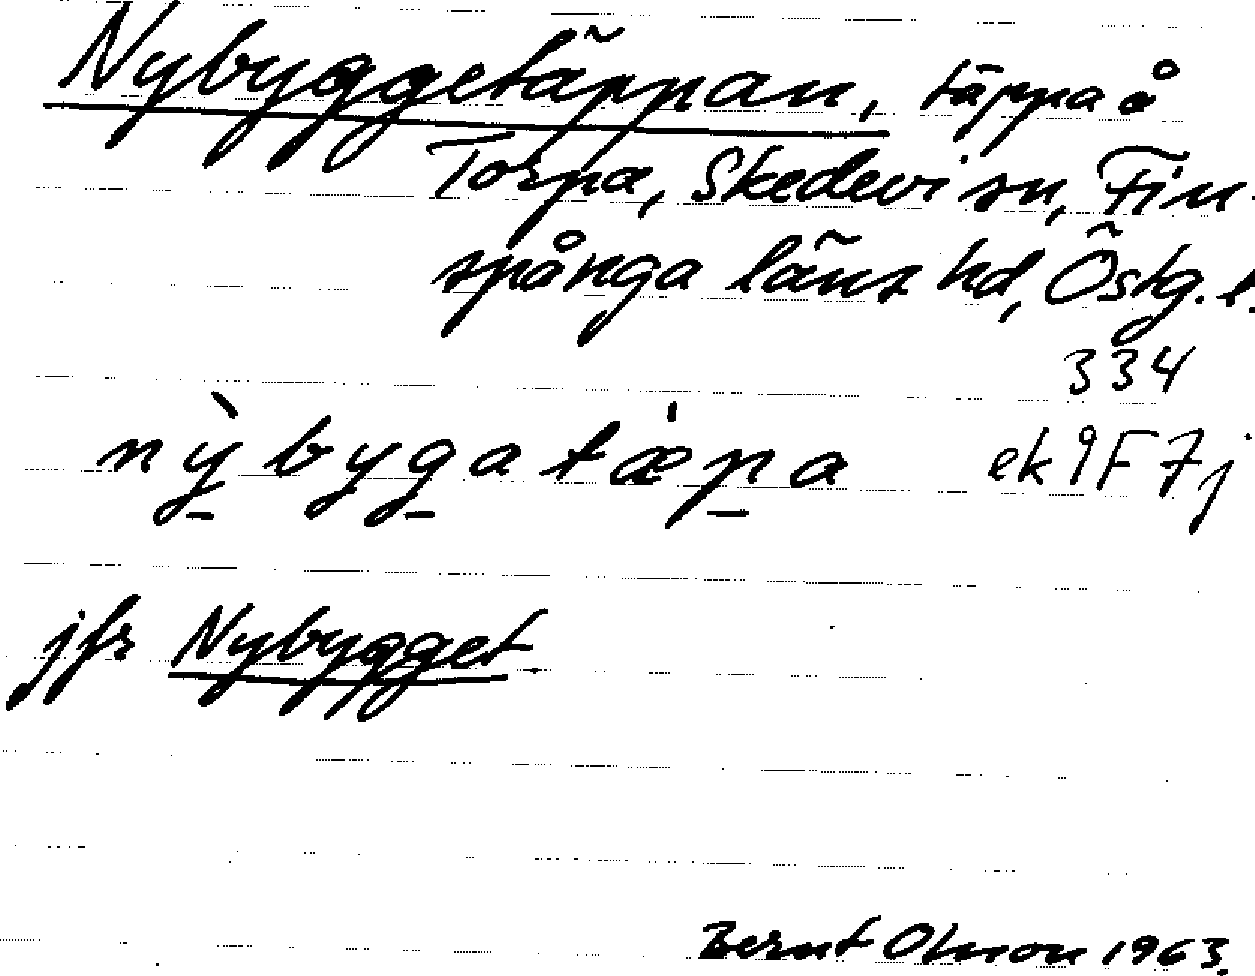 Nybyggetäppan, täppa å
Torpa, Skedevi sn, Fin-
spånga läns hd, Östg. l.
334
nỳbygatæ̍pa ek 9F7j
jfr Nybygget.
Bernt Olsson 1963.